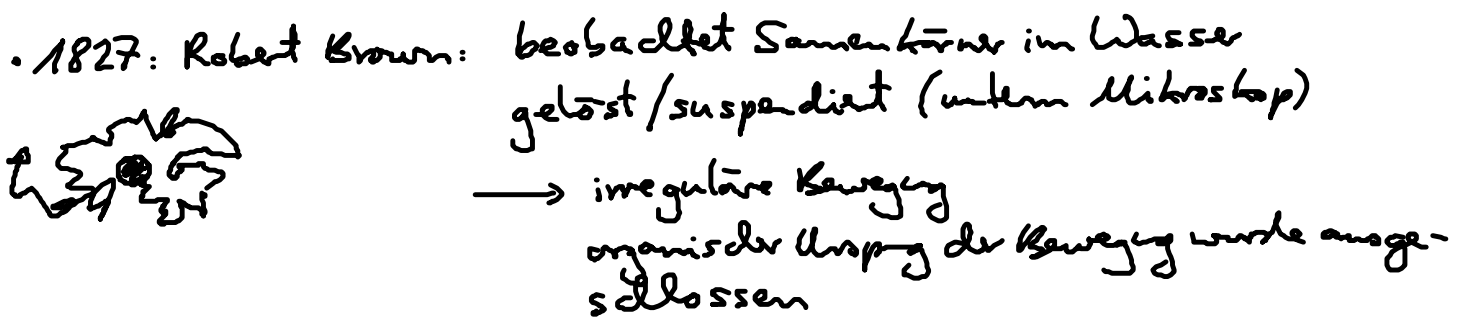 • 1827: Robert Brown: beobachtet Samenkörner im Wasser
gelöst/suspendiert (unterm Mikroskop)
→ irreguläre Bewegung
organischer Ursprung der Bewegung wurde ausge-
schlossen